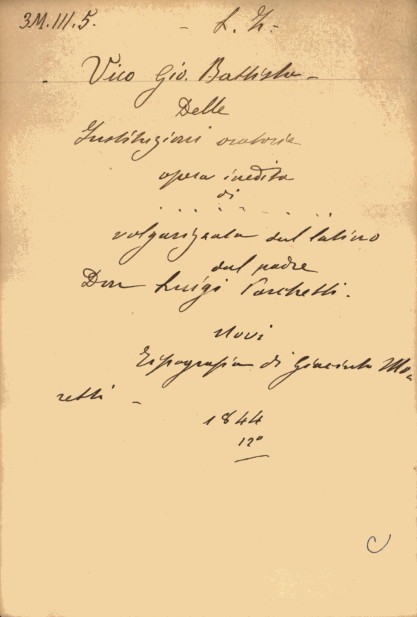 3M.III.5. - L. Z. -
Vico Gio. Battista -
Delle
Instituzioni oratorie
opera inedita
di
. . . . . . . . . .
volgarizzata dal latino
dal padre
Don Luigi Parchetti.
Novi
Tipografia di Giacinto Mo-
retti -
1844
12º